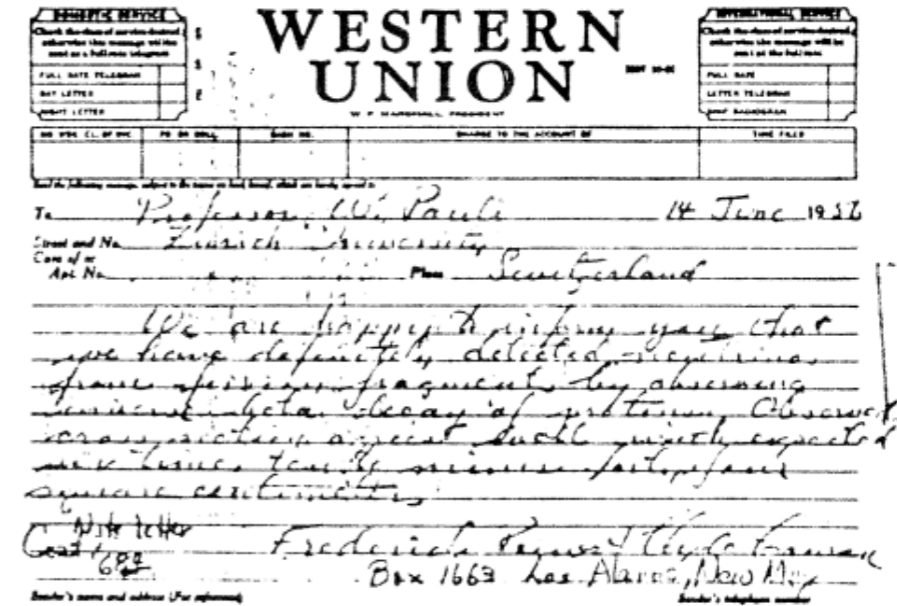 DOMESTIC SERVICE
Check the class of service desired;
otherwise this message will be
sent as a full rate telegram
FULL RATE TELEGRAM
DAY LETTER
NIGHT LETTER
$
$
¢
WESTERN
UNION
W. P. MARSHALL, PRESIDENT
INTERNATIONAL SERVICE
Check the class of service desired;
otherwise this message will be
sent at the full rate
FULL RATE
LETTER TELEGRAM
SHIP RADIOGRAM
NO. WDS.-CL. OF SVC.
PD. OR COLL.
CASH NO.
CHARGE TO THE ACCOUNT OF
TIME FILED
Send the following message, subject to the terms on back hereof, which are hereby agreed to
To Professor W. Pauli 14 June 1956
Street and No. Zurich University
Care of or
Apt. No. Place Switzerland
We are happy to inform you that
we have definitely detected neutrinos
from fission fragments by observing
inverse beta decay of protons. Observed
cross section agrees well with expected
six times ten to minus forty four
square centimeters
Nite letter
Cost 
Frederick Reines, Clyde Cowan
Box 1663 Los Alamos, New Mex
Sender's name and address (For reference)
Sender's telephone number